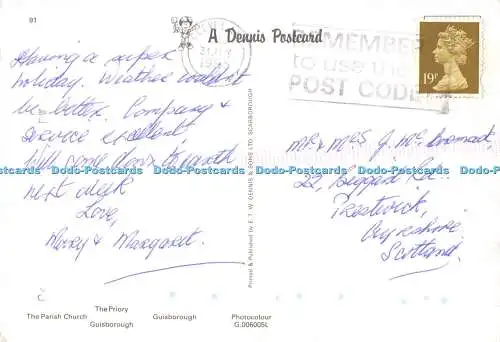 91
A Dennis Postcard
REMEMBER
to use the
POST CODE
19P
Having a super
holiday. Weather couldn't
be better. Company &
service excellent.
Will come down to earth
next week
Love,
Mary & Margaret.
Mr. & Mrs J.
22,
Prestwick,
Ayrshire,
Scotland.
Printed & Published by E. T. W. DENNIS & SONS LTD. SCARBOROUGH
Dodo-Postcards Dodo-Postcards Dodo-Postcards Dodo-Postcards Dodo-Postcards Dodo-Postcards
The Parish Church
Guisborough
The Priory
Guisborough
Photocolour
G.006005L